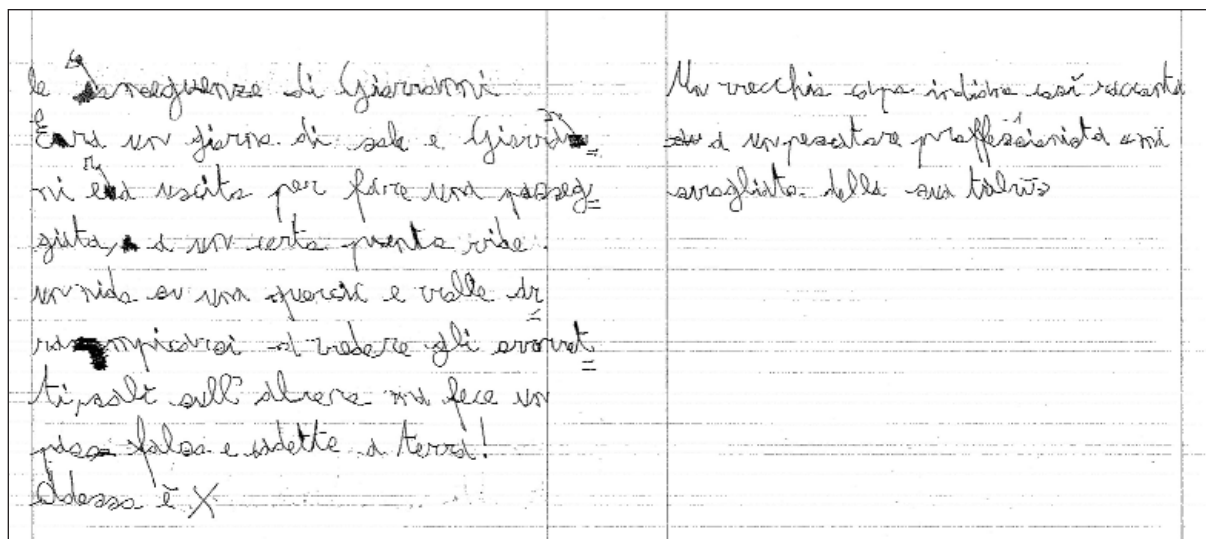 le conseguenze di Giovanni
Era un giorno di sole e Giovan=
ni era uscito per fare una passeg=
giata, a un certo puento vide
un nido su una quercie e volle ar
rampicarsi a vedere gli
ti, salì sull'alberere ma fece un
passo falso e cadette a terra!
Adesso è X
Un vecchio capo indiano così racconta
a un pescatore proffessionista
svogliato della sua tribù